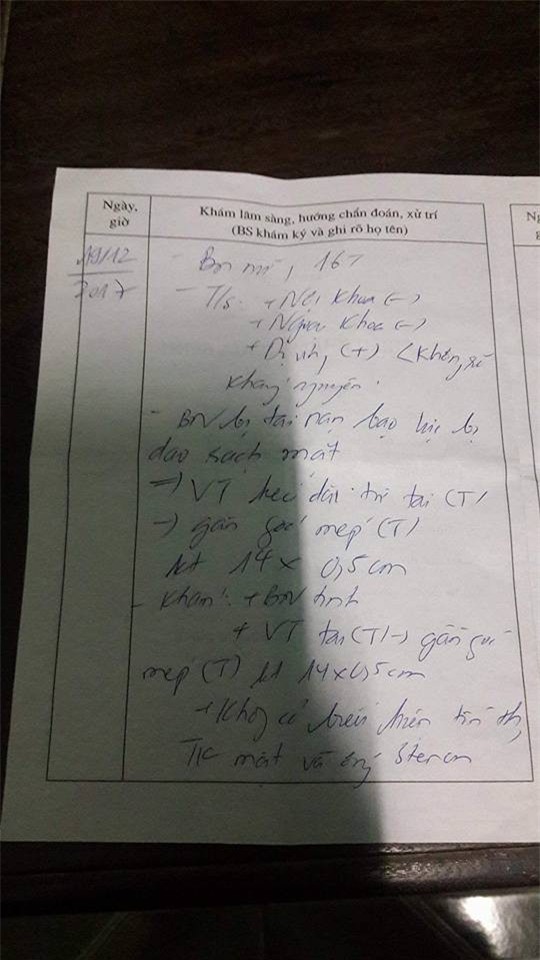 Ngày, giờ
Khám lâm sàng, hướng chẩn đoán, xử trí
(BS khám ký và ghi rõ họ tên)
N
g
19/12
2017
- BN nữ, 16T
- T/s: + Nội khoa (-)
+ Ngoại khoa (-)
+ Dị ứng (+) < không rõ
kháng nguyên
- BN bị tai nạn bạo lực bị
dao sạch mặt
=> VT kéo dài từ tai (T)
-> gần góc mép (T)
kt 14 x 0,5cm
- Khám: + BN tỉnh
+ VT tai (T) -> gần góc
mép (T) kt 14x0,5cm
+ Không có biểu hiện tổn th
TK mặt và ống Stenon